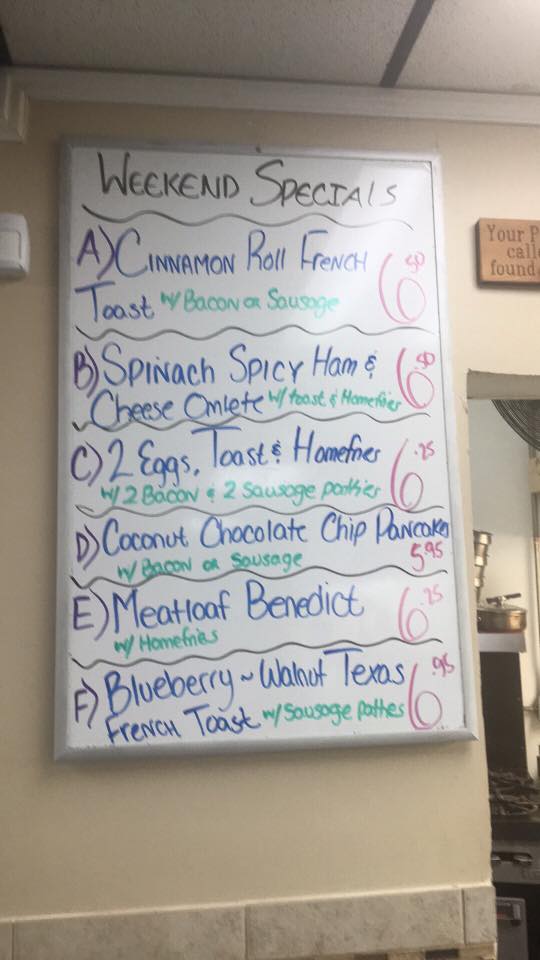 WEEKEND SPECIALS
A) CINNAMON Roll FRENCH 6.50
Toast w/ Bacon or Sausage
B) SPINACH SPICY HAM & 6.50
Cheese Omlete w/ toast & Homefries
C) 2 Eggs, Toast & Homefries 6.25
w/ 2 Bacon & 2 Sausage patties
D) Coconut Chocolate Chip Pancakes
w/ Bacon or Sausage 5.95
E) Meatloaf Benedict 6.25
w/ Homefries
F) Blueberry ~ Walnut Texas 6.95
FRENCH Toast w/ Sausage patties
Your P
calle
found